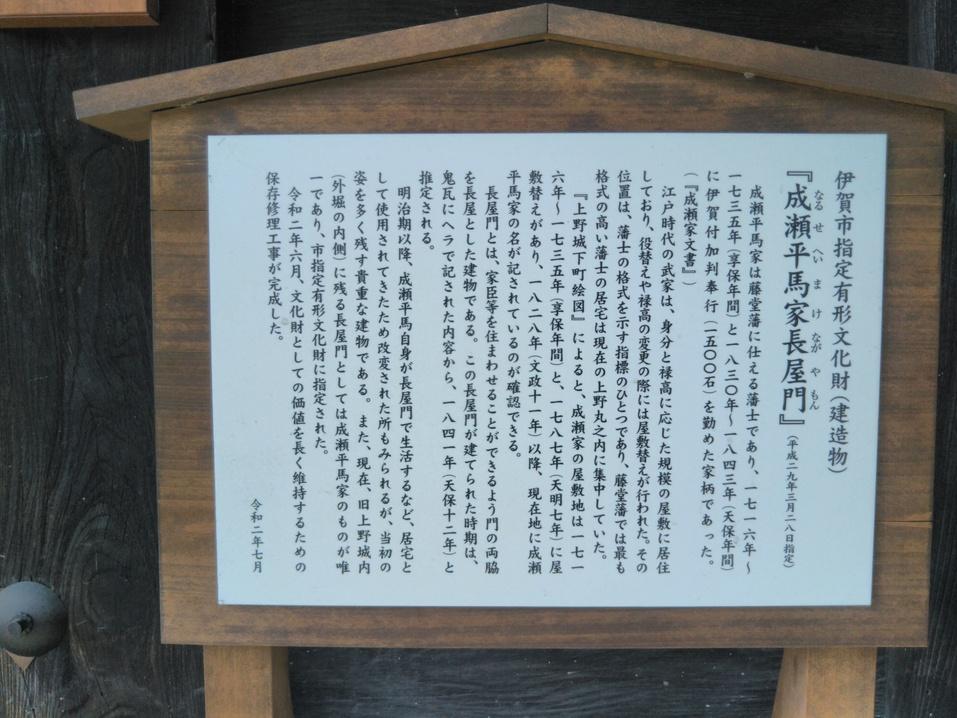 伊賀市指定有形文化財（建造物）
『成瀬平馬家長屋門』（平成二九年三月二八日指定）
なるせへいまけながやもん
成瀬平馬家は藤堂藩に仕える藩士であり、一七一六年～
一七三五年（享保年間）と一八三〇年～一八四三年（天保年間）
に伊賀付加判奉行（一五〇〇石）を勤めた家柄であった。
（『成瀬家文書』）
江戸時代の武家は、身分と禄高に応じた規模の屋敷に居住
しており、役替えや禄高の変更の際には屋敷替えが行われた。その
位置は、藩士の格式を示す指標のひとつであり、藤堂藩では最も
格式の高い藩士の居宅は現在の上野丸之内に集中していた。
『上野城下町絵図』によると、成瀬家の屋敷地は一七一
六年～一七三五年（享保年間）と、一七八七年（天明七年）に屋
敷替えがあり、一八二八年（文政十一年）以降、現在地に成瀬
平馬家の名が記されているのが確認できる。
長屋門とは、家臣等を住まわせることができるよう門の両脇
を長屋とした建物である。この長屋門が建てられた時期は、
鬼瓦にヘラで記された内容から、一八四一年（天保十二年）と
推定される。
明治期以降、成瀬平馬自身が長屋門で生活するなど、居宅と
して使用されてきたため改変された所もみられるが、当初の
姿を多く残す貴重な建物である。また、現在、旧上野城内
（外堀の内側）に残る長屋門としては成瀬平馬家のものが唯
一であり、市指定有形文化財に指定された。
令和二年六月、文化財としての価値を長く維持するための
保存修理工事が完成した。
令和二年七月